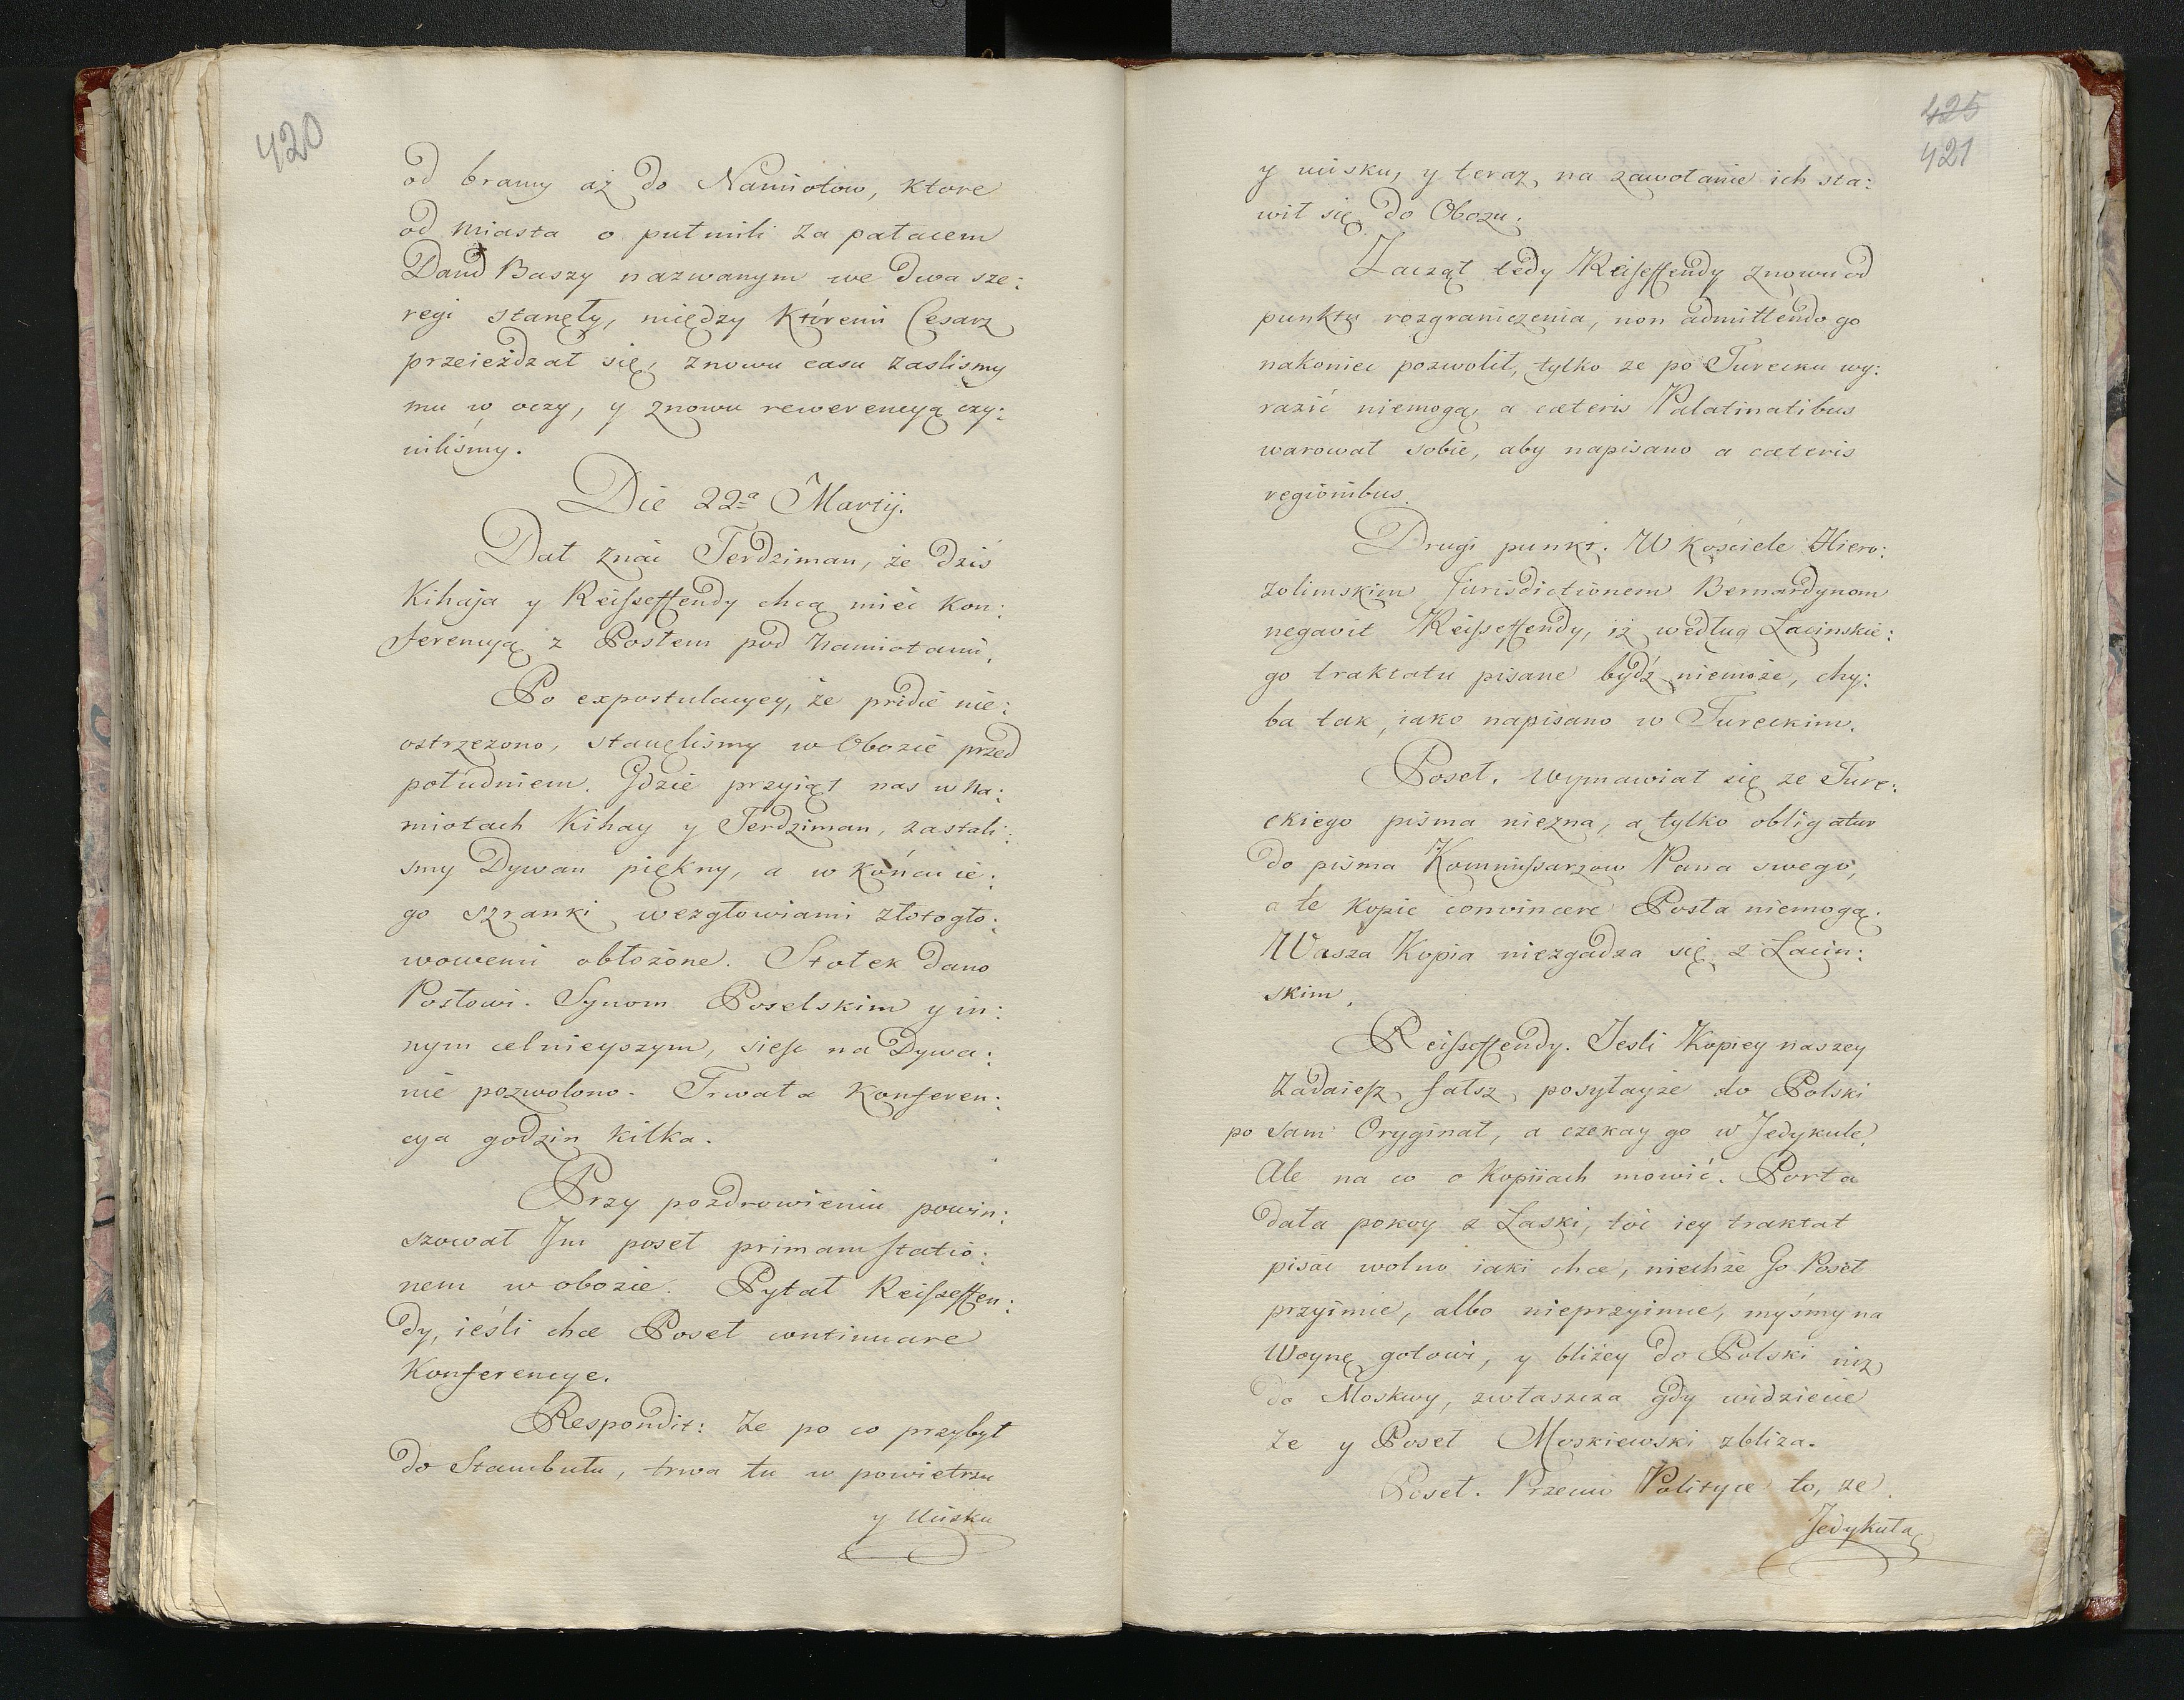 420
od bramy aż do Namiotow, ktore
od Miasta o puł mili za pałacem
Daud Baszy nazwanym we dwa sze:
regi stanęły, między któremi Cesarz
przeieżdzał się, znowu casu zaslismy
mu w oczy, y znowu rewerencyą czy:
niliśmy.
Die 22ª Martij.
Dał znać Terdziman, że dziś
Kihaja y Reisseffendy chcą mieć kon:
ferencyą z Posłem pod namiotami.
Po expostulacyey, że pridie nie:
ostrzeżono, stanęlismy w Obozie przed
południem. Gdzie przyiął nas w na:
miotach Kihay y Terdziman, zastali:
smy Dywan piękny, a w końcu ie:
go szranki wezgłowiami złotogło:
wowemi obłożone. Stołek dano
Posłowi. Synom Poselskim y in:
nym celnieyszym, sieść na Dywa:
nie pozwolono. Trwała konferen:
cya godzin kilka.
Przy pozdrowieniu powin:
szował Im poseł primam statio:
nem w obozie. Pytał Reisseffen:
dy, ieśli chce Poseł continuare
Konferencye.
Respondit: Ze po co przybył
do Stambułu, trwa tu w powietrzu
y Ucisku
425
421
y ucisku, y teraz na zawołanie ich sta:
wił się do Obozu.
Zaczął tedy Reisseffendy znowu od
punktu rozgraniczenia, non admittendo go
nakoniec pozwolił, tylko ze po Turecku wy:
razić niemogą, a cæteris Palatinatibus
warował sobie, aby napisano a cæteris
regionibus.
Drugi punkt. W kościele Hiero:
zolimskim Jurisdictionem Bernardynom
negavit Reisseffendy, iż według Łacinskie:
go traktatu pisane bydź niemoże, chy:
ba tak, iako napisano w Tureckim.
Poseł. Wymawiał się ze Ture:
ckiego pisma niezna, a tylko obligatur
do pisma Kommissarzow Pana swego,
a te kopie convincere Posła niemogą.
Wasza Kopia niezgadza się z Łacin:
skim.
Reisseffendy. Jesli Kopiey naszey
Zadaiesz fałsz, posyłayże do Polski
po sam Oryginał, a czekay go w Jedykule.
Ale na co o Kopiiach mowić. Porta
dała pokoy z Łaski, toć iey traktat
pisać wolno iaki chce, niechże Go Poseł
przyimie, albo nieprzyimie, myśmy na
Woynę gotowi, y bliżey do Polski niz
do Moskwy, zwłaszcza gdy widziecie
że y Poseł Moskiewski zbliza.
Poseł. Przeciw Polityce to, ze
Jedykułą